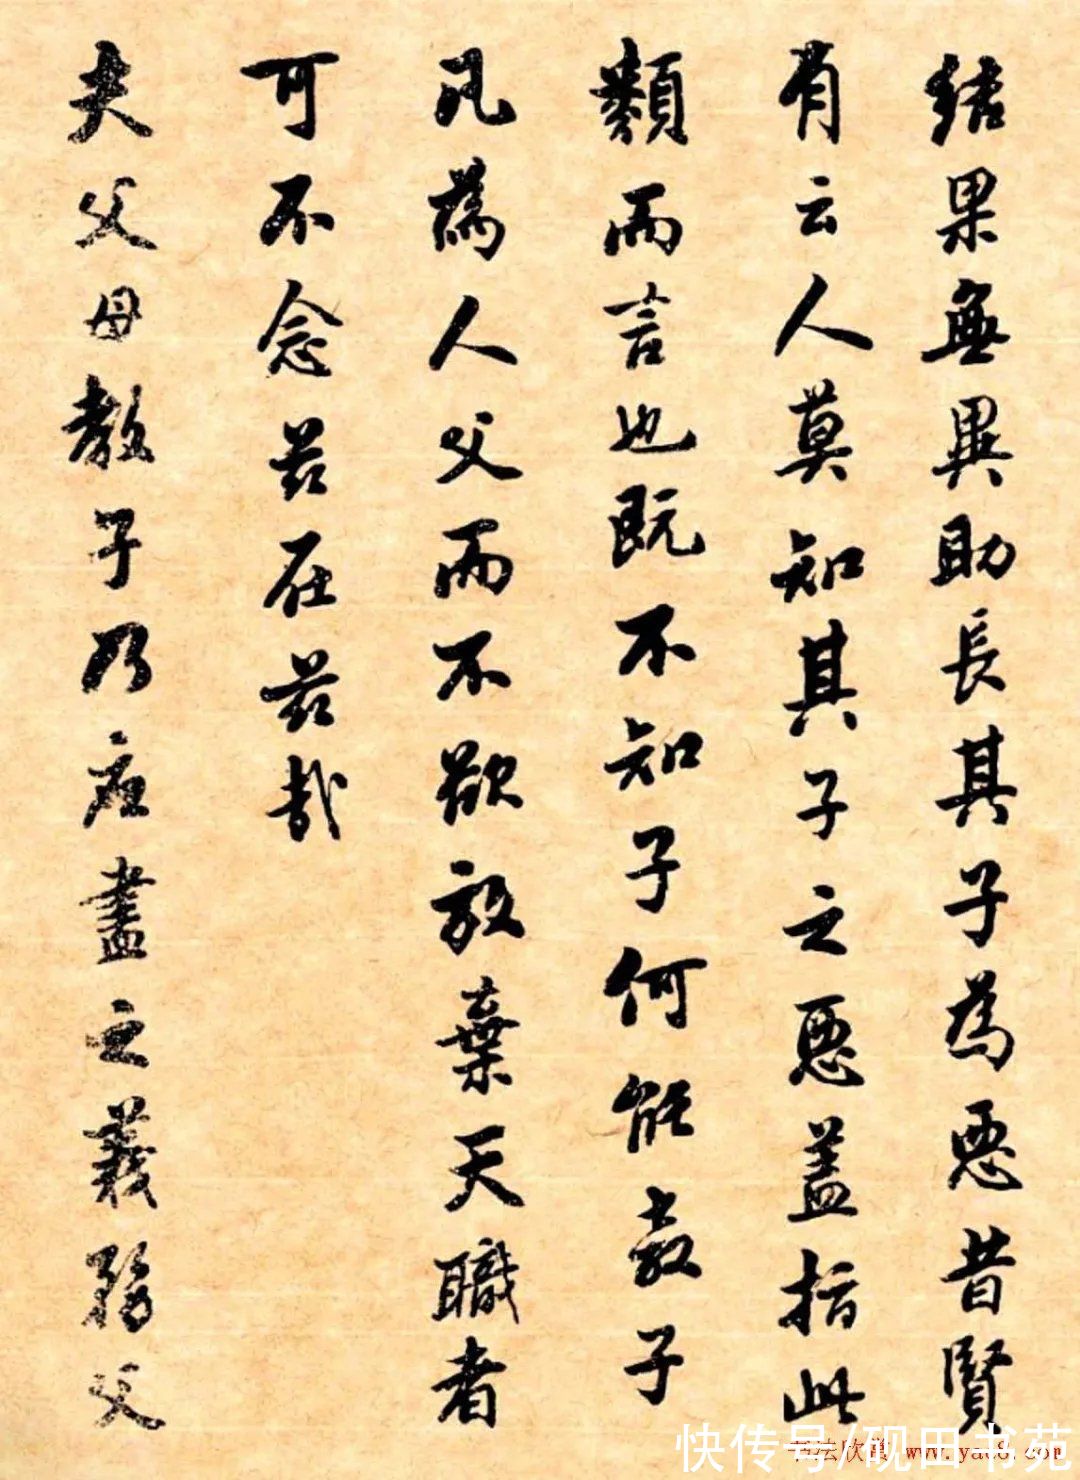 結果無異助長其子為惡昔賢
有云人莫知其子之惡蓋指此
類而言也既不知子何能教子
凡為人父而不欲放棄天職者
可不念茲在茲哉
夫父母教子乃應盡之義務父
快传号/砚田书苑
书法欣赏 www.yac8.com